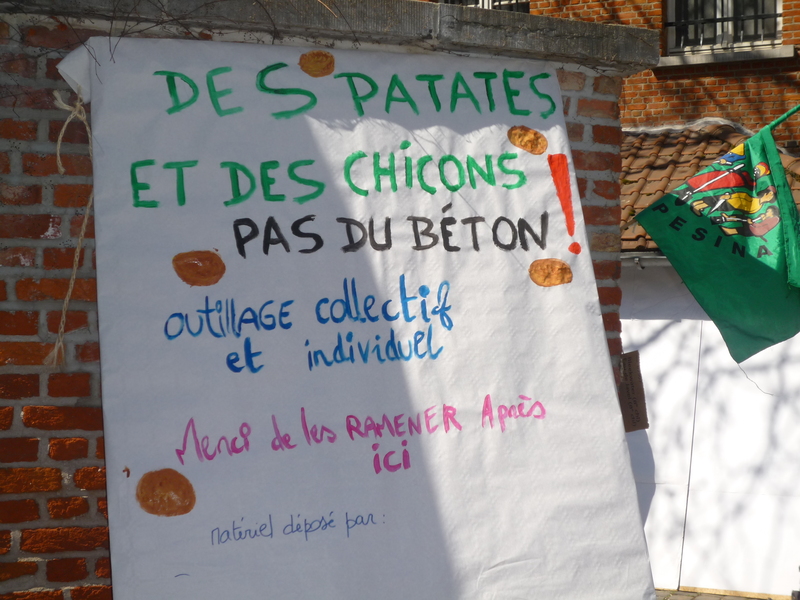 DES PATATES
ET DES CHiCONS
PAS DU BÉTON!
OUTILLAGE collectif
et individuel
Merci de les RAMENER Après
ici
matériel déposé par:
PESINA